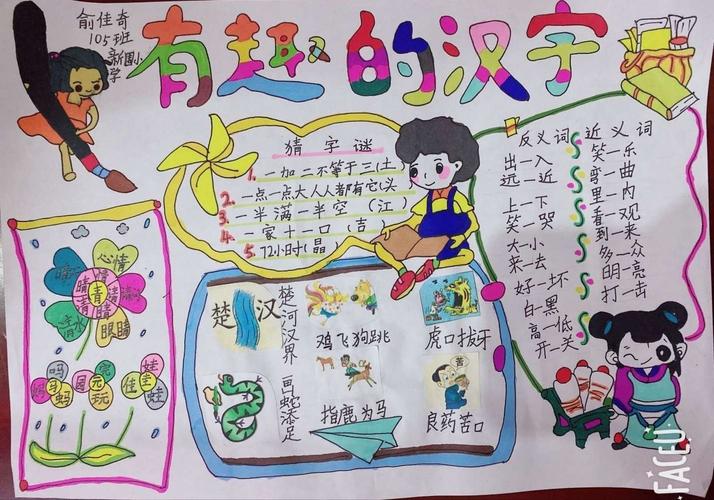 俞佳奇
105班
新围小
学
有趣的汉字
猜字谜
1. 一加二不等于三(土)
2. 一点一大人人都有它(头
3. 一半满一半空(江)
4. 一家十一口(吉
5. 72小时(晶
反义词
出—入
远—近
上—下
笑—哭
大—小
来—去
好—坏
白—黑
高—低
开—关
近义词
笑—乐
弯—曲
里—内
看—观
到—来
多—众
明—亮
打—击
心情
晴
情
请
清
睛
青
清水
眼睛
吗
妈
蚂
园
完
元
玩
佳
娃
圭
蛙
楚
汉
楚河汉界
画蛇添足
鸡飞狗跳
指鹿为马
虎口拔牙
良药苦口
FACEU